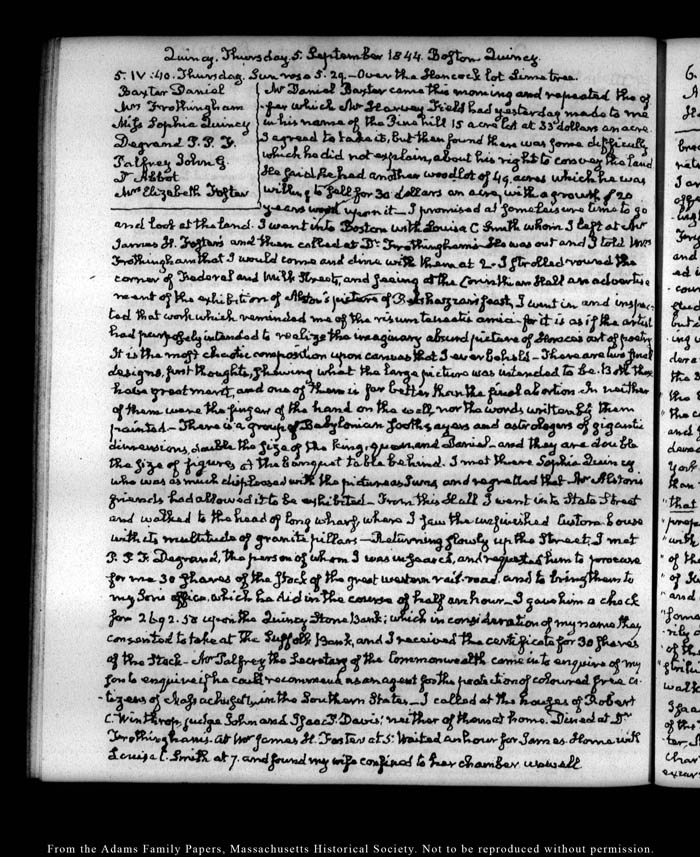 Quincy. Thursday 5. September 1844. Boston Quincy.
5. IV:40. Thursday. Sun rose 5.29 – Over the Hancock lot Lime tree.
Baxter Daniel
Mrs Frothingham
Miss Sophia Quincy
Degrand P. P. F.
Palfrey John G.
Dr Abbot
Mrs Elizabeth Foster
Mr Daniel Baxter came this morning and repeated the of
fer which Mr Harvey Field had yesterday made to me
in his name of the Pine hill 15 acre lot at 35 dollars an acre.
I agreed to take it, but then found there was some difficulty
which he did not explain, about his right to convey the land
He said he had another woodlot of 49 acres which he was
willing to sell for 30 dollars an acre, with a growth of 20
years wood upon it – I promised at some leisure time to go
and look at the land. I went into Boston with Louisa C. Smith whom I left at Mr
James H. Foster's and then called at Dr Frothingham's. He was out and I told Mrs
Frothingham that I would come and dine with them at 2 – I strolled round the
corner of Federal and Milk Street, and seeing at the Corinthian Hall an advertise
ment of the exhibition of Alston's picture of Belshazzar's feast, I went in and inspec
ted that work which reminded me of the risum teneatis amici – for it is as if the artist
had purposely intended to realize the imaginary absurd picture of Horace's art of poetry
It is the most chaotic composition upon canvas that I ever beheld – There are two small
designs, first thoughts, shewing what the large picture was intended to be. Both these
have great merit, and one of them is far better than the final abortion. In neither
of them were the fingers of the hand on the wall, nor the words written by them
painted – There is a group of Babylonian soothsayers and astrologers of gigantic
dimensions, double the size of the king, queen and Daniel – and they are double
the size of figures at the banquet table behind. I met there Sophia Quincy
who was as much displeased with the picture as I was, and regretted that Mr Alston's
friends had allowed it to be exhibited – From this Hall I went into State Street
and walked to the head of long wharf, where I saw the unfinished Custom house
with its multitude of granite pillars – Returning slowly up the Street, I met
P. P. F. Degrand, the person of whom I was in search, and requested him to procure
for me 30 shares of the stock of the great western rail-road. and to bring them to
my Son's office, which he did in the course of half an hour – I gave him a check
for 2692.50 upon the Quincy Stone Bank; which in consideration of my name they
consented to take at the Suffolk Bank, and I received the certificate for 30 shares
of the Stock – Mr Palfrey the Secretary of the Commonwealth came in to enquire of my
son to enquire if he could recommend as an agent for the protection of coloured free ci-
tizens of Massachusetts, in the Southern States – I called at the houses of Robert
C. Winthrop, Judge John and Isaac P. Davis; neither of them at home. Dined at Dr
Frothingham's. At Mr James H. Foster at 5. Waited an hour for James. Home with
Louisa C. Smith at 7. and found my wife confined to her chamber unwell
From the Adams Family Papers, Massachusetts Historical Society. Not to be reproduced without permission.